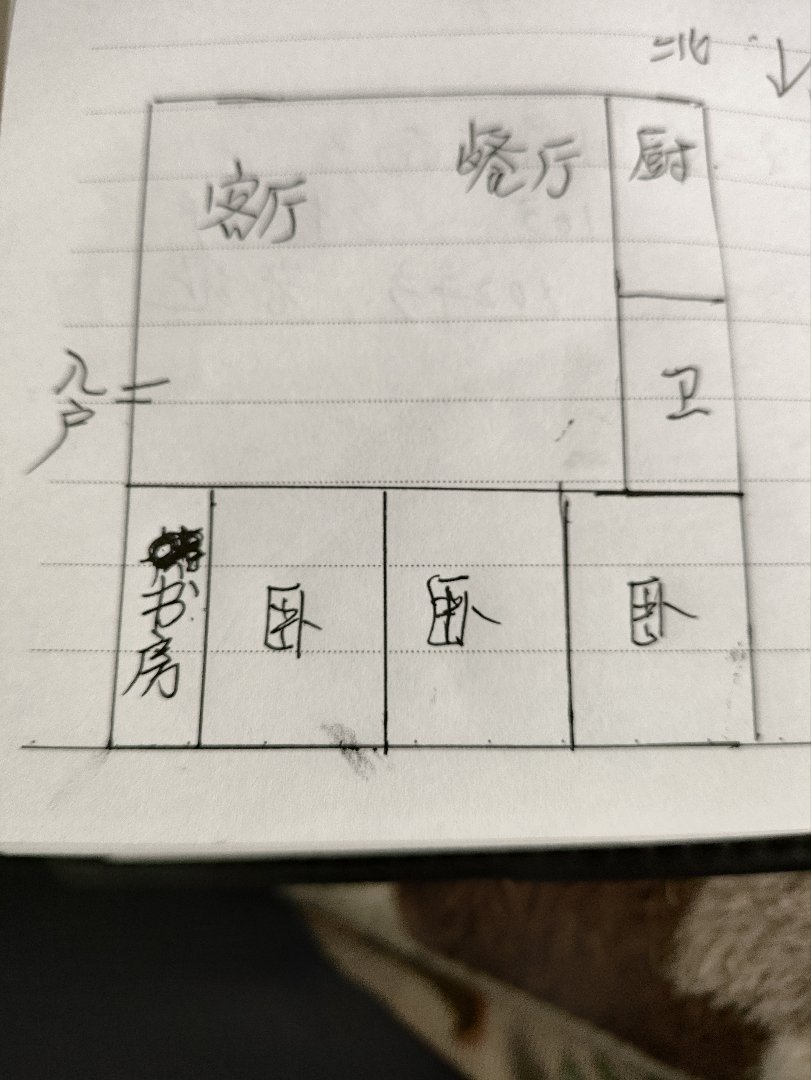 北
客厅
餐厅
厨
入户
卫
书房
卧
卧
卧